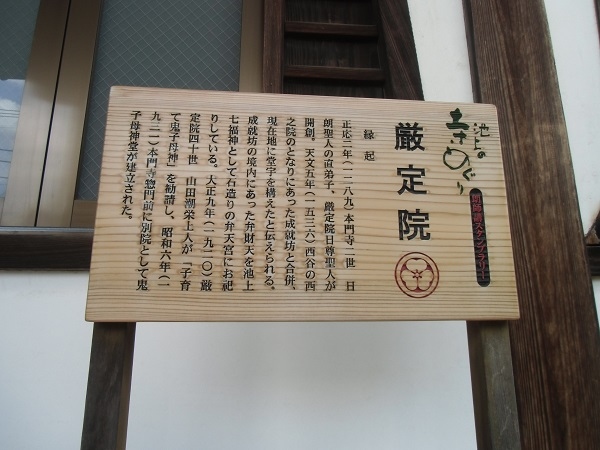 池上の
寺めぐり
開運謎スタンプラリー
厳定院
縁起
正応二年(一二八九)本門寺二世 日
朗聖人の直弟子、厳定院日尊聖人が
開創。天文五年(一五三六)西谷の西
之院のとなりにあった成就坊と合併、
現在地に堂宇を構えたと伝えられる。
成就坊の境内にあった弁財天を池上
七福神として石造りの弁天宮にお祀
りしている。大正九年(一九二〇)厳
定院四十世 山田潮栄上人が「子育
て鬼子母神」を勧請し、昭和六年(一
九三一)本門寺惣門前に別院として鬼
子母神堂が建立された。